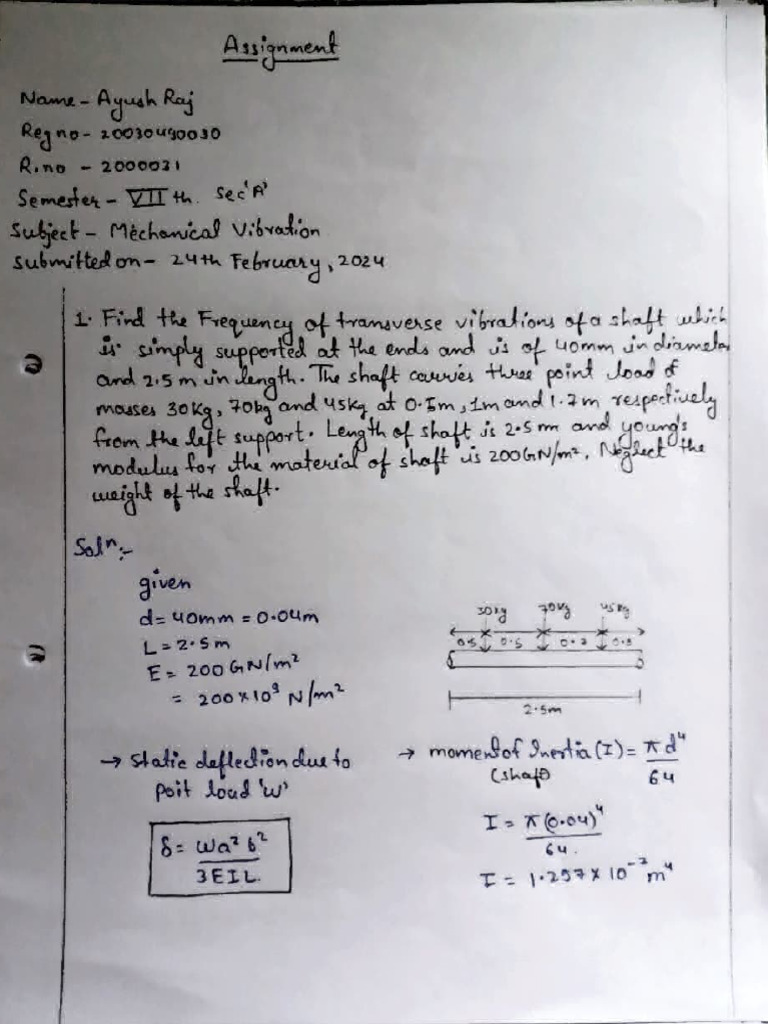 Assignment
Name - Ayush Raj
Reg no - 20030490030
R.no - 2000031
Semester - VII th. Sec 'A'
Subject - Mechanical Vibration
Submitted on - 24th February, 2024
1. Find the Frequency of transverse vibrations of a shaft which
is simply supported at the ends and is of 40mm in diameter
and 2.5 m in length. The shaft carries three point load of
masses 30Kg, 70kg and 45Kg at 0.5m, 1m and 1.7m respectively
from the left support. Length of shaft is 2.5m and young's
modulus for the material of shaft is 200GN/m², Neglect the
weight of the shaft.
Solⁿ:-
given
d= 40mm = 0.04m
L = 2.5m
E = 200 GN/m²
= 200×10⁹ N/m²
30kg 70kg 45kg
0.5 0.5 0.7 0.8
2.5m
→ static deflection due to
poit load 'w'
δ = wa²b²
3EIL.
→ moment of Inertia (I) = πd⁴
(shaft) 64
I = π(0.04)⁴
64.
I = 1.257×10⁻⁷ m⁴